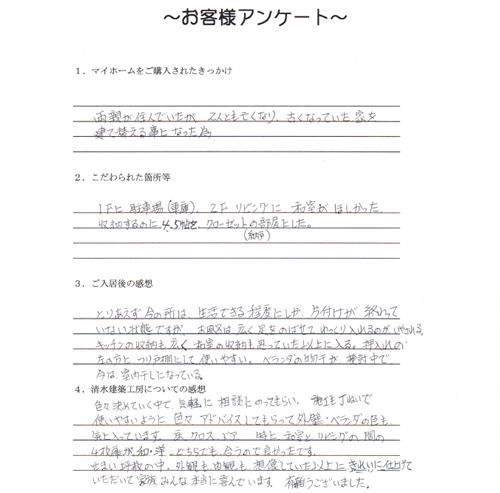 ～お客様アンケート～
1．マイホームをご購入されたきっかけ
両親が住んでいたが、2人とも亡くなり、古くなっていた家を
建て替える事になった為
2．こだわられた箇所等
1Fに駐車場(車庫)、2Fリビングに和室がほしかった。
収納するのに4.5帖を、クローゼットの部屋とした。
(納戸)
3．ご入居後の感想
とりあえず今の所は、生活できる程度にしか、片付けが終わって
いない状態ですが、お風呂は、広く足をのばせてゆっくり入れるのが、いやされる。
キッチンの収納も広く、和室の収納も思っていた以上に入る。押入れの
左の方につり戸棚にして使いやすい。ベランダの物干が、検討中で
今は、室内干しとなっている。
4．清水建築工房についての感想
色々決めていく中で、気軽に相談にのってもらい、
使いやすいように色々アドバイスしてもらって外壁・ベランダの色も
気に入っています。床、クロス、ドア 特に和室とリビングの間の
4枚扉が、和・洋、どちらでも合うので良かったです。
せまい坪数の中、外観も内観も想像していた以上にきれいに仕上げて
いただいて家族みんな本当に喜んでいます。有難うございました。